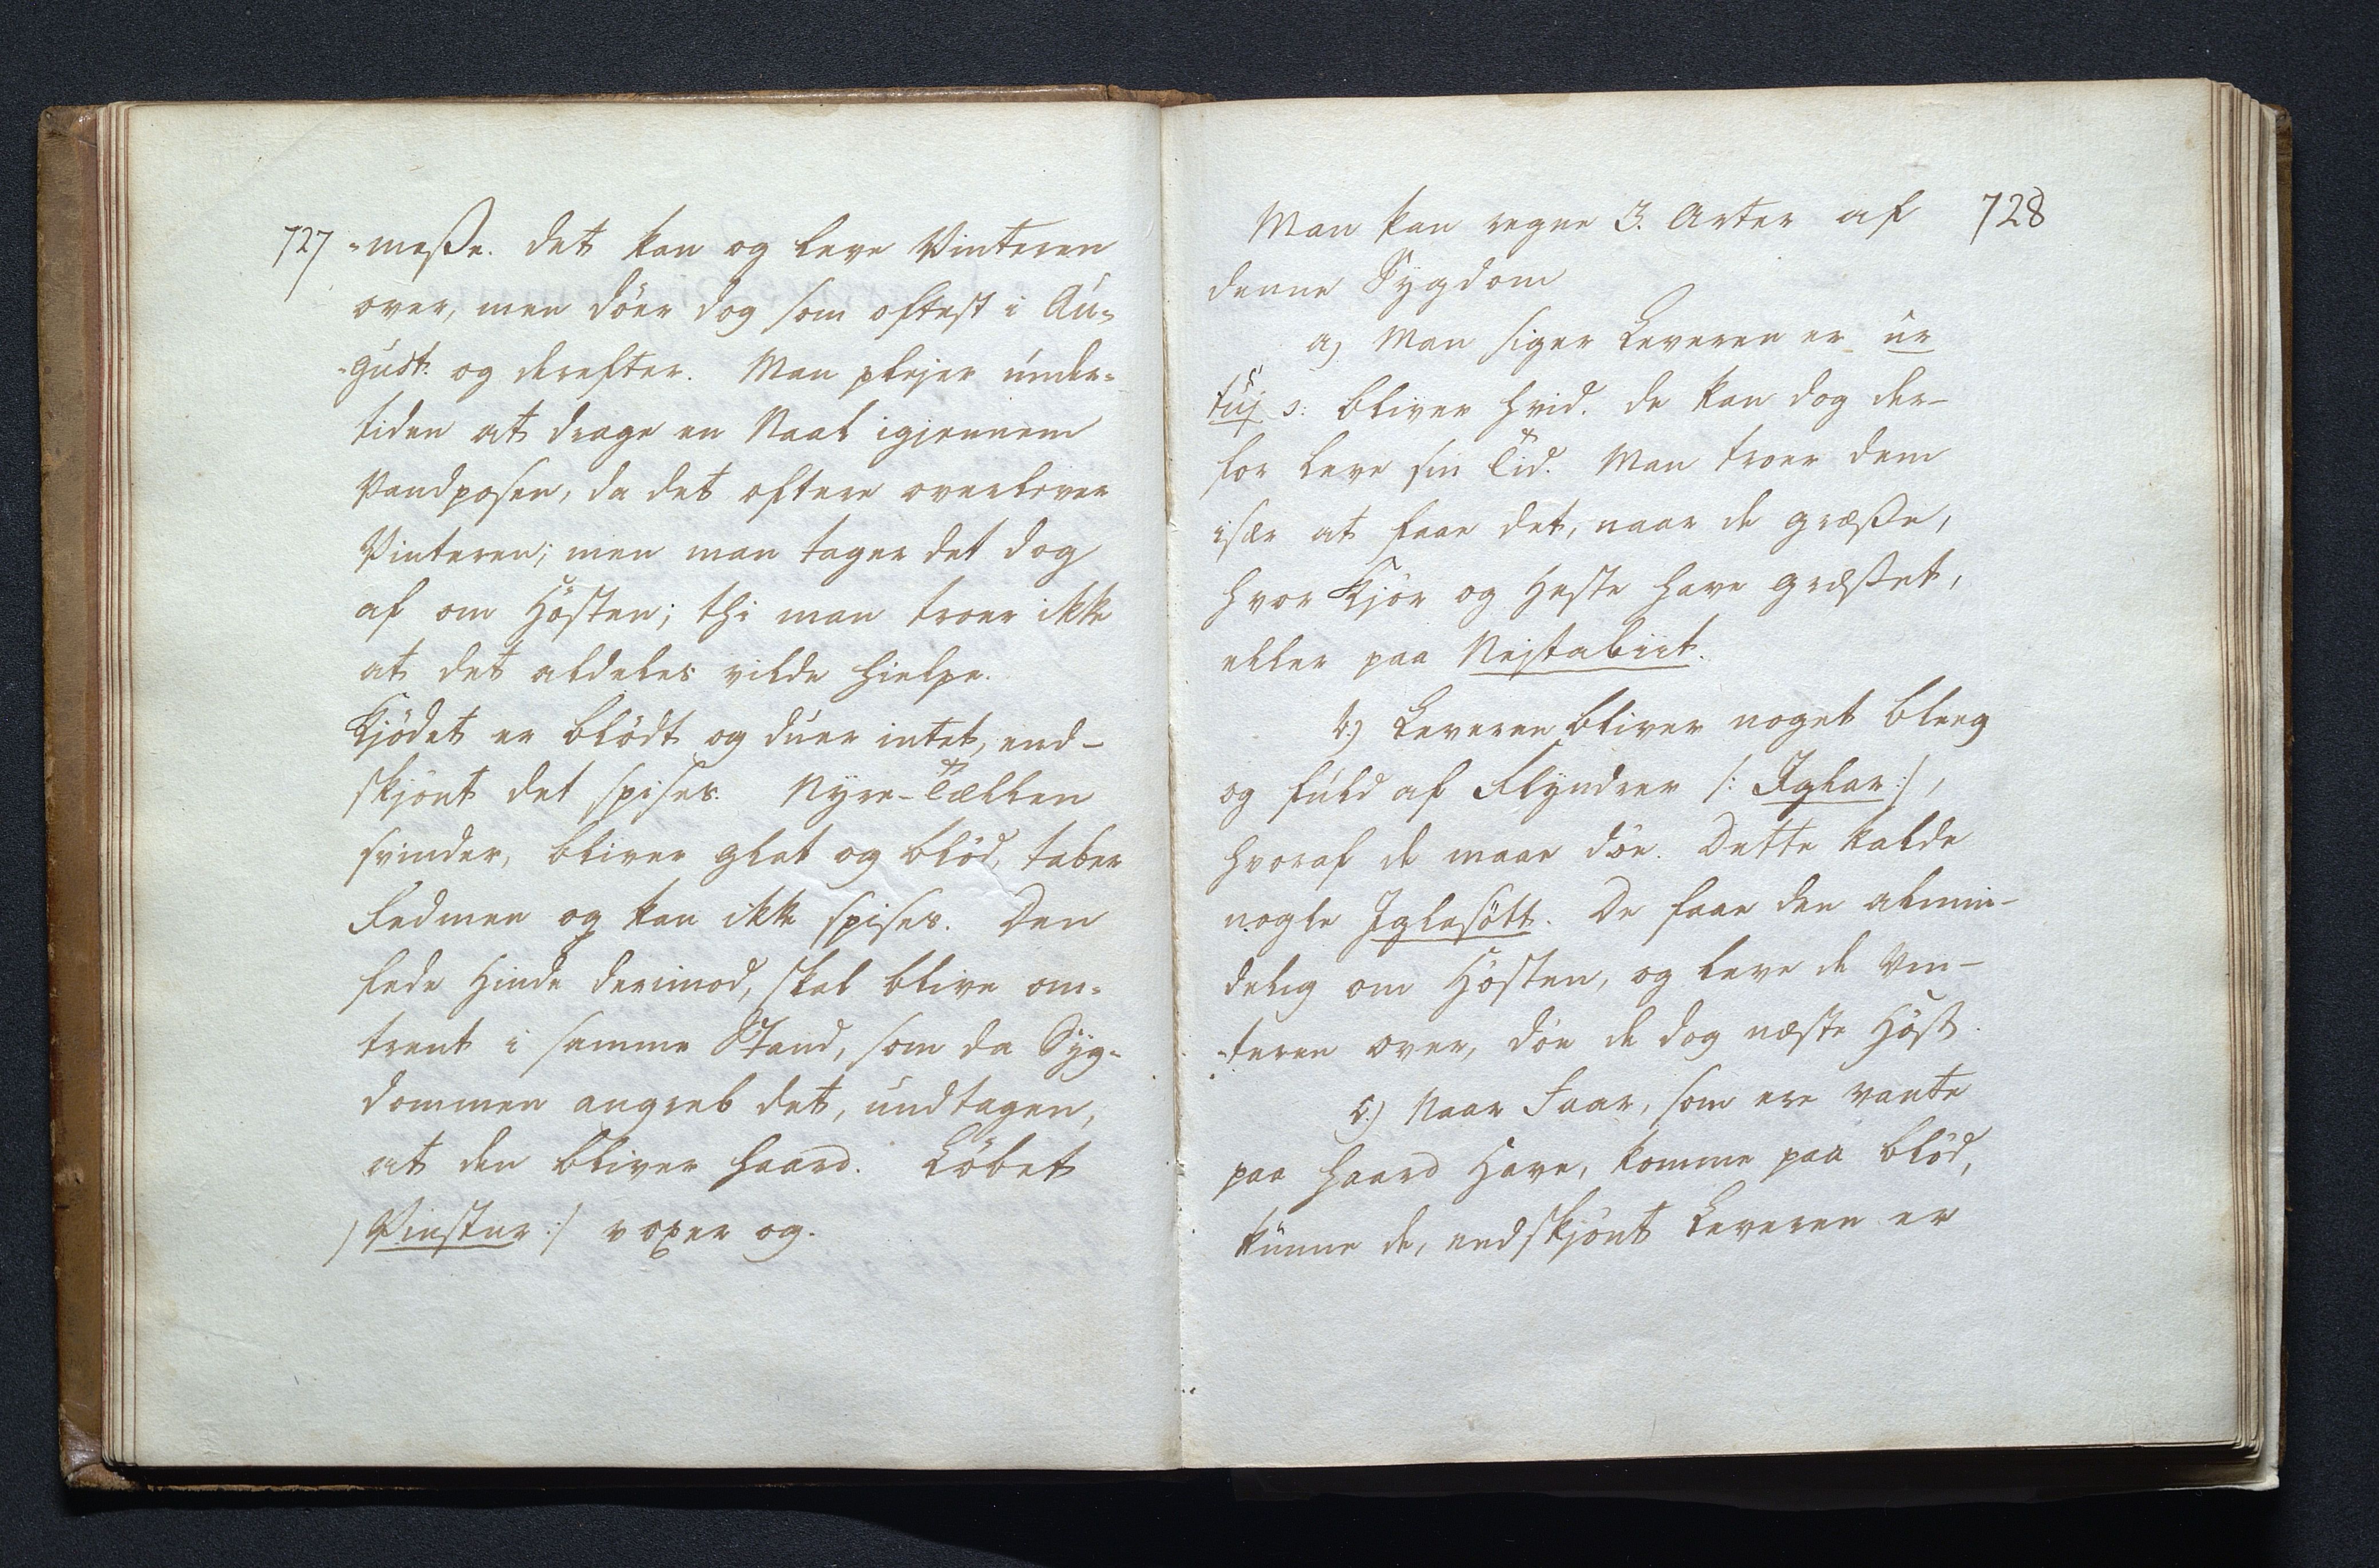 727
-meße. det kan og leve Vinteren
over, men döer dog som oftest i Au-
-gust. og derefter. Man plejer under-
tiden at drage en Naal igjennem
Vandposen, da det oftere overlever
Vinteren; men man tager det dog
af om Hösten; thi man troer ikke
at det aldeles vilde hielpe.
Kjödet er blödt og duer intet, end-
skjönt det spises. Nyre-Tællen
svinder, bliver glat og blöd, taber
Fedmen og kan ikke spises. Den
fede Hinde derimod, skal blive om-
trent i samme Stand, som da Syg-
dommen angreb det, undtagen,
at den bliver haard. Löbet
/Vinstur:/ voxer og.
728
Man kan regne 3. Arter af
denne Sygdom
a) Man siger Leveren er ur
ɔ: bliver hvid. de kan dog der-
for leve sin Tid. Man troer dem
især at faae det, naar de græße,
hvor Kjör og Heste have græßet,
eller paa Nejstabiit.
b.) Leveren bliver noget bleeg
og fuld af Flyndrer /: Iglar:/,
hvoraf de maae döe. Dette kalde
nogle Iglasött. De faae den almin-
delig om Hösten, og leve de Vin-
-teren over, döe de dog næste Höst.
c.) Naar Faar, som ere vante
paa haard Have, komme paa blöd,
kunne de, endskjönt Leveren er